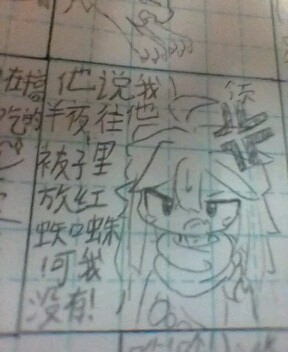 在搞
吃的
他说我
半夜往他
被子里
放红
蜘蛛
!可我
没有!